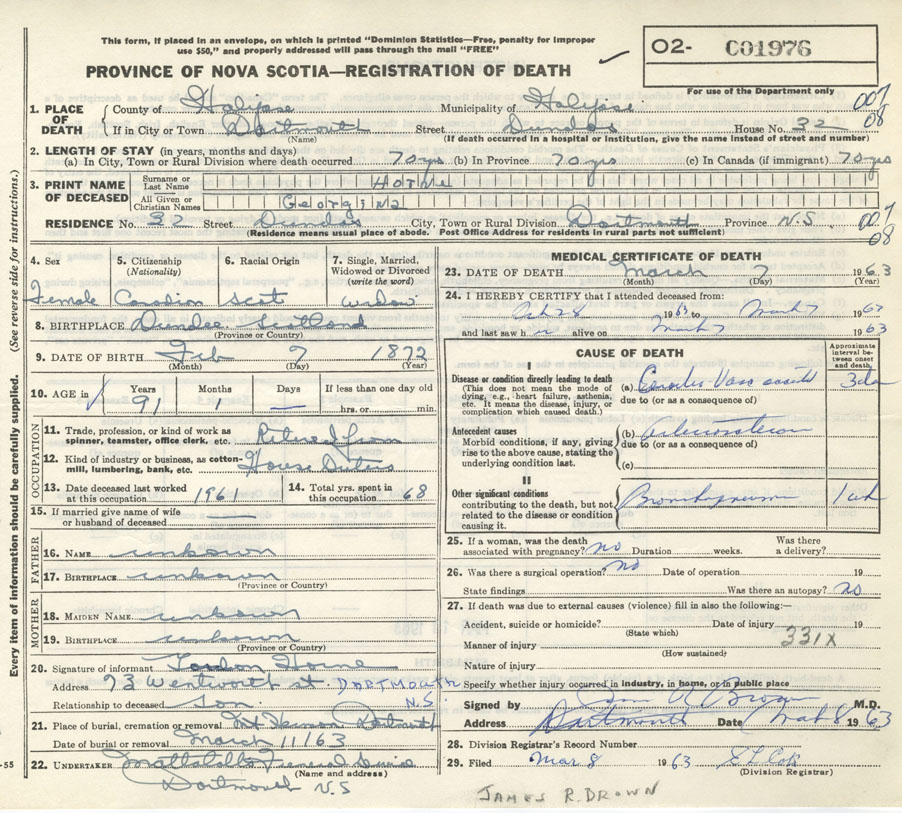 This form, if placed in an envelope, on which is printed "Dominion Statistics—Free, penalty for improper
use $50," and properly addressed will pass through the mail "FREE"
O2- C01976
PROVINCE OF NOVA SCOTIA—REGISTRATION OF DEATH
For use of the Department only
1. PLACE OF DEATH County of Halifax Municipality of Halifax 007
If in City or Town Dartmouth Street Dundas House No. 32 08
(Name) (If death occurred in a hospital or institution, give the name instead of street and number)
2. LENGTH OF STAY (in years, months and days)
(a) In City, Town or Rural Division where death occurred 70 yrs (b) In Province 70 yrs (c) In Canada (if immigrant) 70 yrs
3. PRINT NAME OF DECEASED Surname or Last Name HORNE
All Given or Christian Names Georgina
RESIDENCE No. 32 Street Dundas City, Town or Rural Division Dartmouth Province N.S 007
(Residence means usual place of abode. Post Office Address for residents in rural parts not sufficient) 08
4. Sex Female
5. Citizenship (Nationality) Canadian
6. Racial Origin Scot
7. Single, Married, Widowed or Divorced (write the word) widow
8. BIRTHPLACE Dundee Scotland
(Province or Country)
9. DATE OF BIRTH Feb 7 1872
(Month) (Day) (Year)
10. AGE in Years Months Days If less than one day old
91 1 — hrs. or min.
OCCUPATION
11. Trade, profession, or kind of work as spinner, teamster, office clerk, etc. Retired from
12. Kind of industry or business, as cotton-mill, lumbering, bank, etc. House Duties
13. Date deceased last worked at this occupation 1961
14. Total yrs. spent in this occupation 68
15. If married give name of wife or husband of deceased —
FATHER
16. NAME unknown
17. BIRTHPLACE unknown
(Province or Country)
MOTHER
18. MAIDEN NAME unknown
19. BIRTHPLACE unknown
(Province or Country)
20. Signature of informant Gordon Horne
Address 73 Wentworth st. DARTMOUTH
Relationship to deceased Son. N.S.
21. Place of burial, cremation or removal Mt Hermon Dartmouth
Date of burial or removal March 11/63
22. UNDERTAKER Mattatalls Funeral Service
(Name and address)
Dartmouth N.S
MEDICAL CERTIFICATE OF DEATH
23. DATE OF DEATH March 7 1963
(Month) (Day) (Year)
24. I HEREBY CERTIFY that I attended deceased from:
28 1963 to March 7 1963
and last saw h alive on March 7 1963
CAUSE OF DEATH
Approximate interval between onset and death
I
Disease or condition directly leading to death
(This does not mean the mode of dying, e.g., heart failure, asthenia, etc. It means the disease, injury, or complication which caused death.)
(a) Cerebro Vasc 3 da
due to (or as a consequence of)
Antecedent causes
Morbid conditions, if any, giving rise to the above cause, stating the underlying condition last.
(b)
due to (or as a consequence of)
(c)
II
Other significant conditions
contributing to the death, but not related to the disease or condition causing it.
Bronchopneumonia 1 wk
25. If a woman, was the death associated with pregnancy? no Duration weeks. Was there a delivery?
26. Was there a surgical operation? no Date of operation 19
State findings Was there an autopsy? no
27. If death was due to external causes (violence) fill in also the following:—
Accident, suicide or homicide? Date of injury 19
(State which) 331X
Manner of injury
(How sustained)
Nature of injury
Specify whether injury occurred in industry, in home, or in public place
Signed by Jam R Brown M.D.
Address Dartmouth Date Mar 8 1963
28. Division Registrar's Record Number
29. Filed Mar 8 1963
(Division Registrar)
JAMES R. BROWN
Every item of information should be carefully supplied. (See reverse side for instructions.)
-55